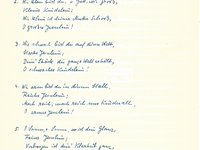 2. Wie klein bist du, o Gott, wie groß,
Kleins Kindelein!
Wie klein ist deiner Mutter Schoß,
O großer Jesulein!
3. Wie schwach bist du auf dieser Welt,
Jesulein,
die ganze Welt erhält,
O schwaches Kindelein!
4. Wie arm bist du im dürren Stall,
Reiches Jesulein,
Mach reich, mach reich uns
O armes Jesulein!
5. O Sonne, Sonne, wo ist dein Glanz,
Feines Jesulein,
Verborgen ist dein' Klarheit ganz,